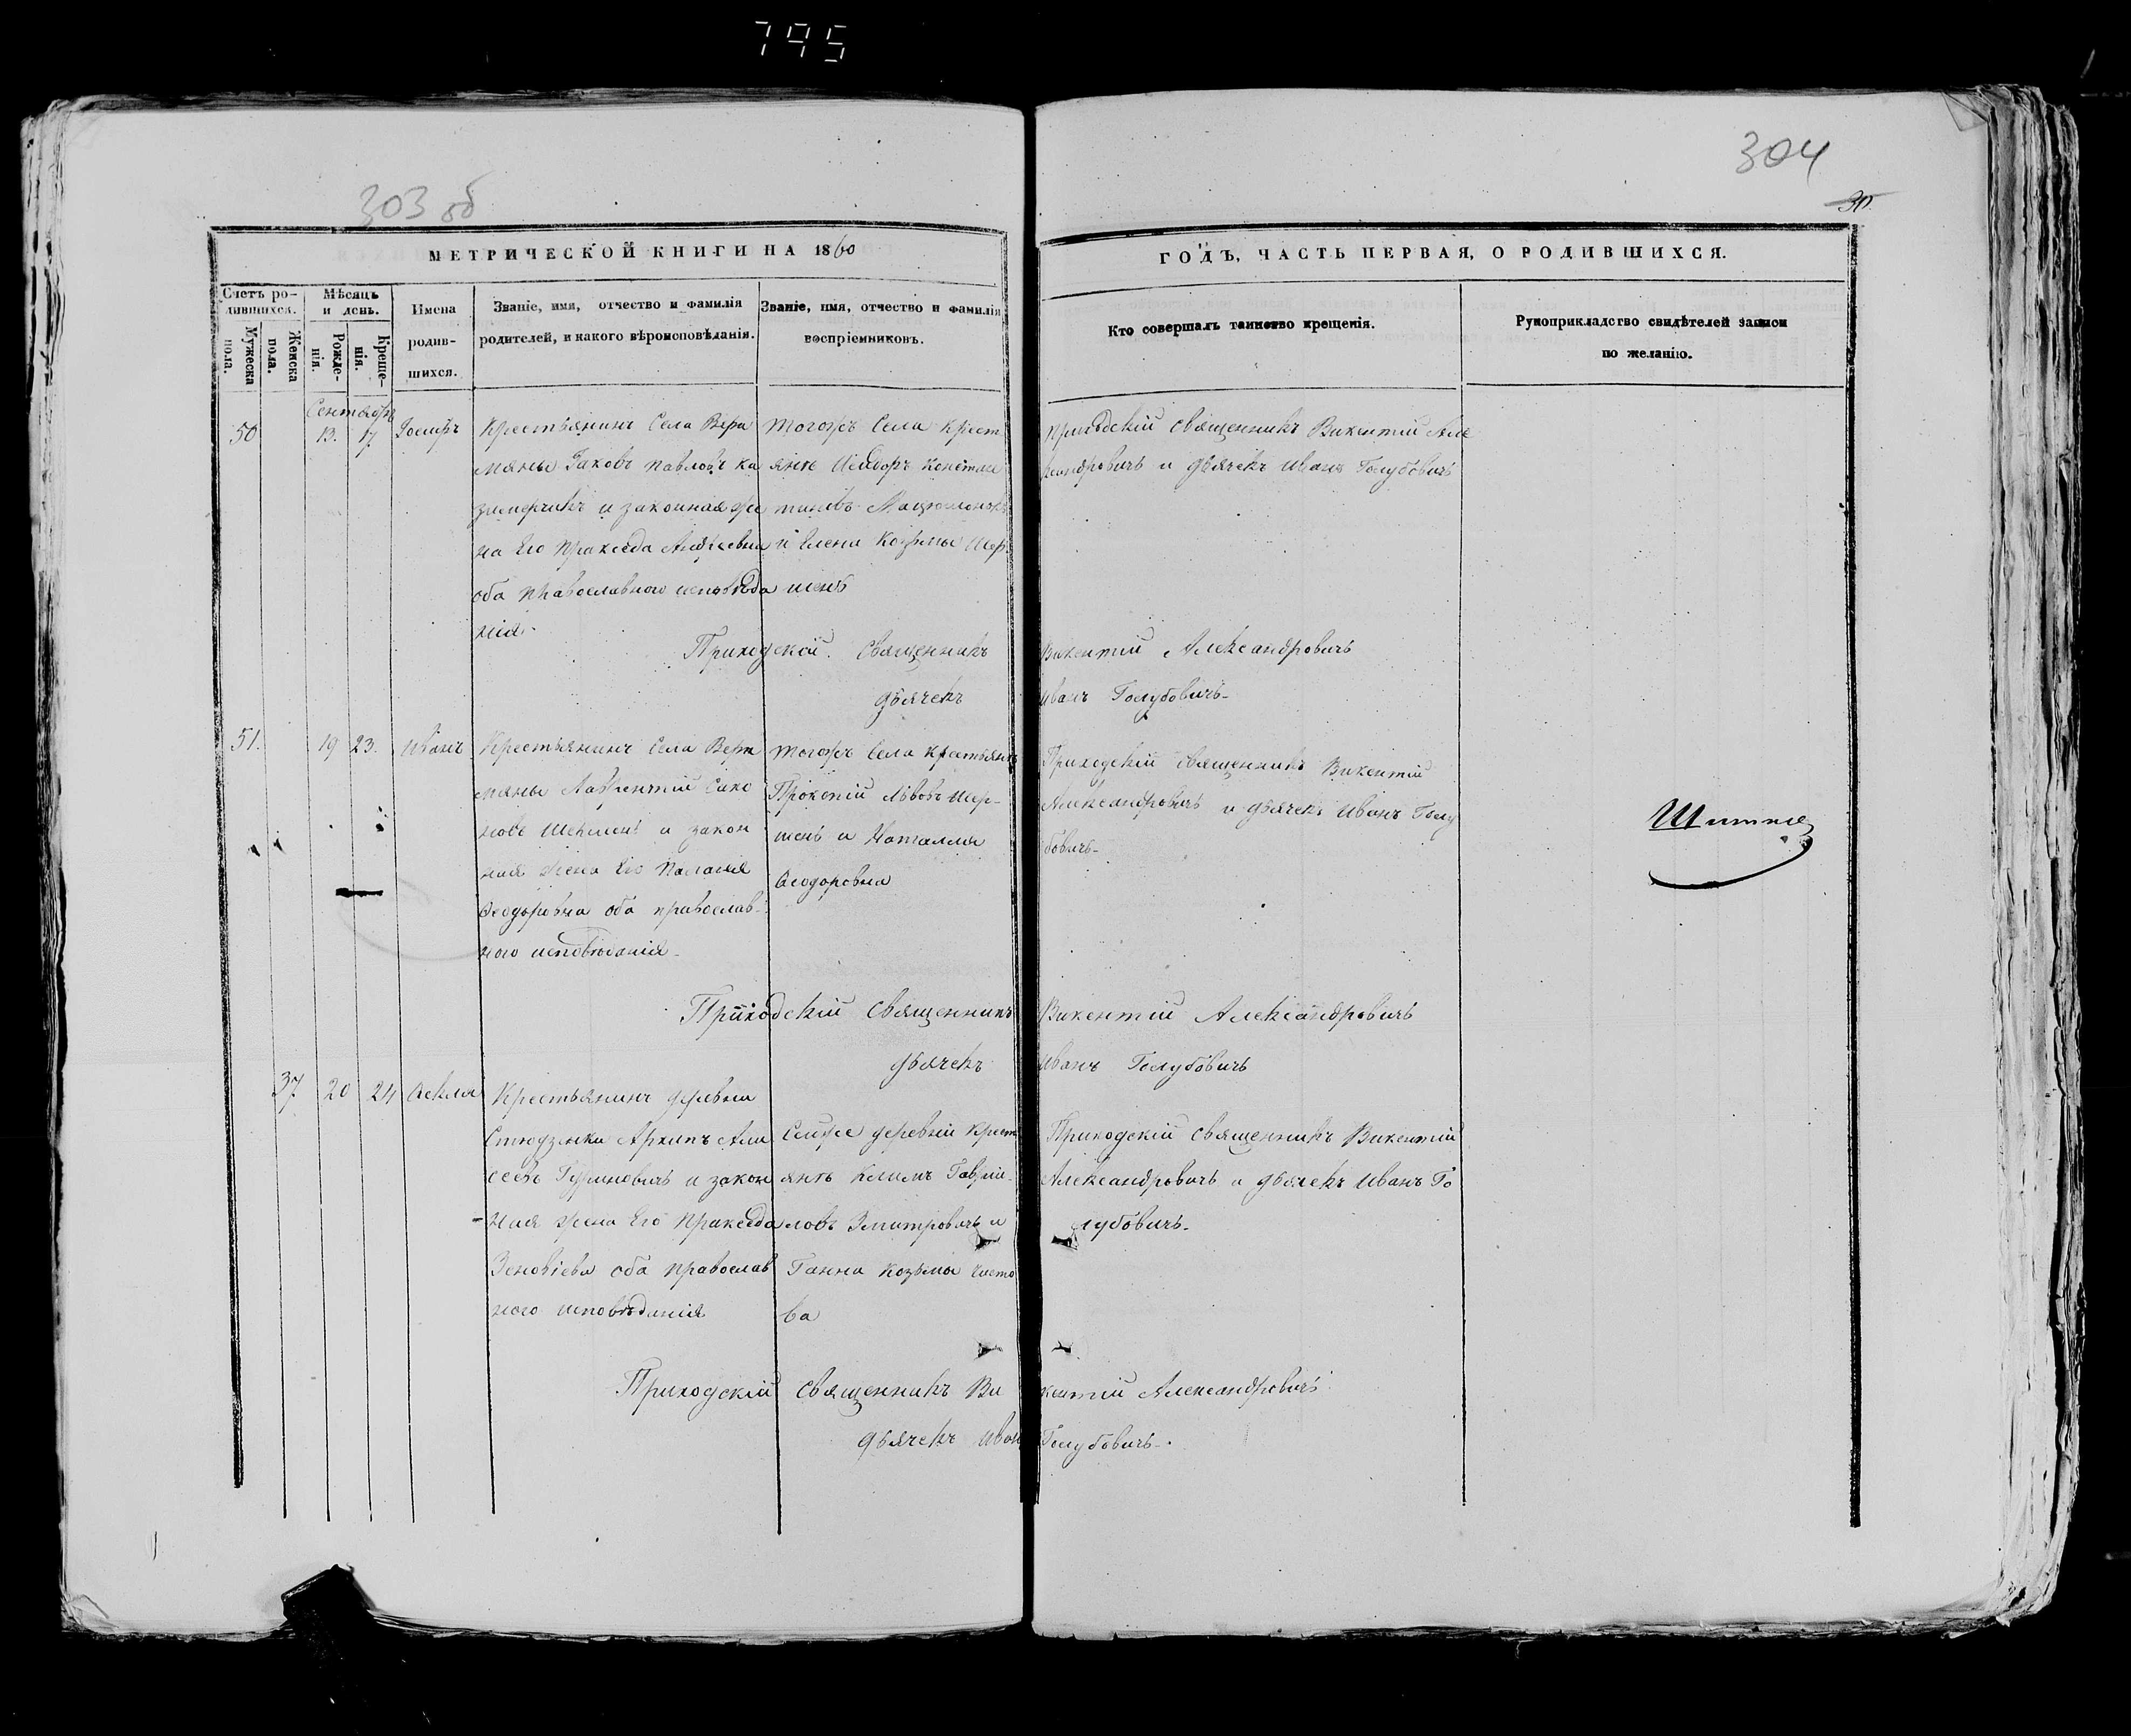 795
303 об
304
30
МЕТРИЧЕСКОЙ КНИГИ НА 1860
ГОДЪ, ЧАСТЬ ПЕРВАЯ, О РОДИВШИХСЯ.
Счетъ ро-
дившихся.
Мужеска
пола.
Женска
пола.
Мѣсяцъ
и день.
Рожде-
нія.
Креще-
нія.
Имена
родив-
шихся.
Званіе, имя, отчество и фамилія
родителей, и какого вѣроисповѣданія.
Званіе, имя, отчество и фамилія
воспріемниковъ.
Кто совершалъ таинство крещенія.
Рукоприкладство свидѣтелей записи
по желанію.
Сентябрь
50
13. 17
Крестьянинъ Села Вера
мяны Іаковъ Павловъ Ка
и законная же
на Его Пракседа Андреевна
оба православного исповѣда
нія.
тогожъ Села крест
янe
и Елена Козьмы Шер
шень
приходскій священникъ Викентій Але
ксандровичъ и дьячекъ Иванъ Голубовичъ
Приходскій священникъ Викентій Александровичъ
дьячекъ Иванъ Голубовичъ
51.
19 23.
Иванъ
Крестьянинъ Села Вера
мяны Лаврентій
и закон
ная жена Его
Ѳеодоровна оба православ-
ного исповѣданія
тогожъ Села крестьянe
Прокопій Львовъ Шер-
шень и Наталлия
Ѳеодоровна
Приходскій священникъ Викентій
Александровичъ и дьячекъ Иванъ Голу
бовичъ
Приходскій священникъ Викентій Александровичъ
дьячекъ Иванъ Голубовичъ
37
20 24
Ѳекла
Крестьянинъ деревни
Студзенки Архипъ Али
сеевъ Гуриновичъ и закон
ная жена Его Пракседа
Зеновіева оба православ
ного исповѣданія
Сейже деревни крест
янe Климъ Гаврии
ловъ Змитровичъ и
Ганна Козьмы
ва
Приходскій священникъ Викентій
Александровичъ и дьячекъ Иванъ Го
лубовичъ
Приходскій священникъ Викентій Александровичъ
дьячекъ Иванъ Голубовичъ